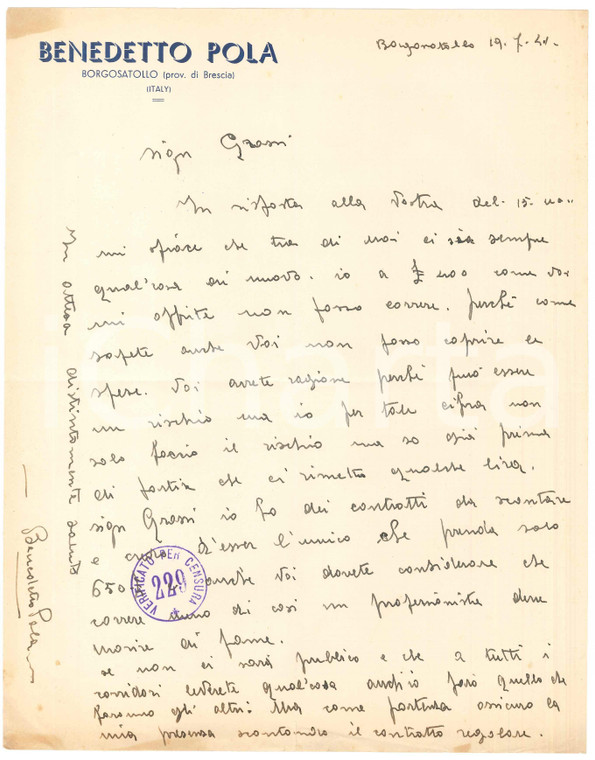 BENEDETTO POLA
BORGOSATOLLO (prov. di Brescia)
(ITALY)
Borgosatollo 19.7.41.
sign Grassi
In risposta alla Vostra del. 15. no..
mi spiace che tra di noi ci sia sempre
qual'cosa di nuovo. io a £ 400 come voi
mi offrite non posso correre. perchè come
sapete anche Voi non posso coprire le
spese. Voi avrete ragione perchè può essere
un rischio ma io per tale cifra non
solo faccio il rischio ma so già prima
di partir che ci rimetto qualche lira.
sign Grassi io ho dei contratti da scontare
e credo d'esser l'unico che prenda solo
650 anche Voi dovete considerare che
correre di così un professionista deve
morire di fame.
se non ci sarà publico e che a tutti i
corridori leverete qual'cosa anch'io farò quello che
faranno gli altri: Ma come partenza assicuro la
mia presenza scontando il contratto regolare.
In attesa distintamente saluto
Benedetto Pola
VERIFICATO PER CENSURA
229